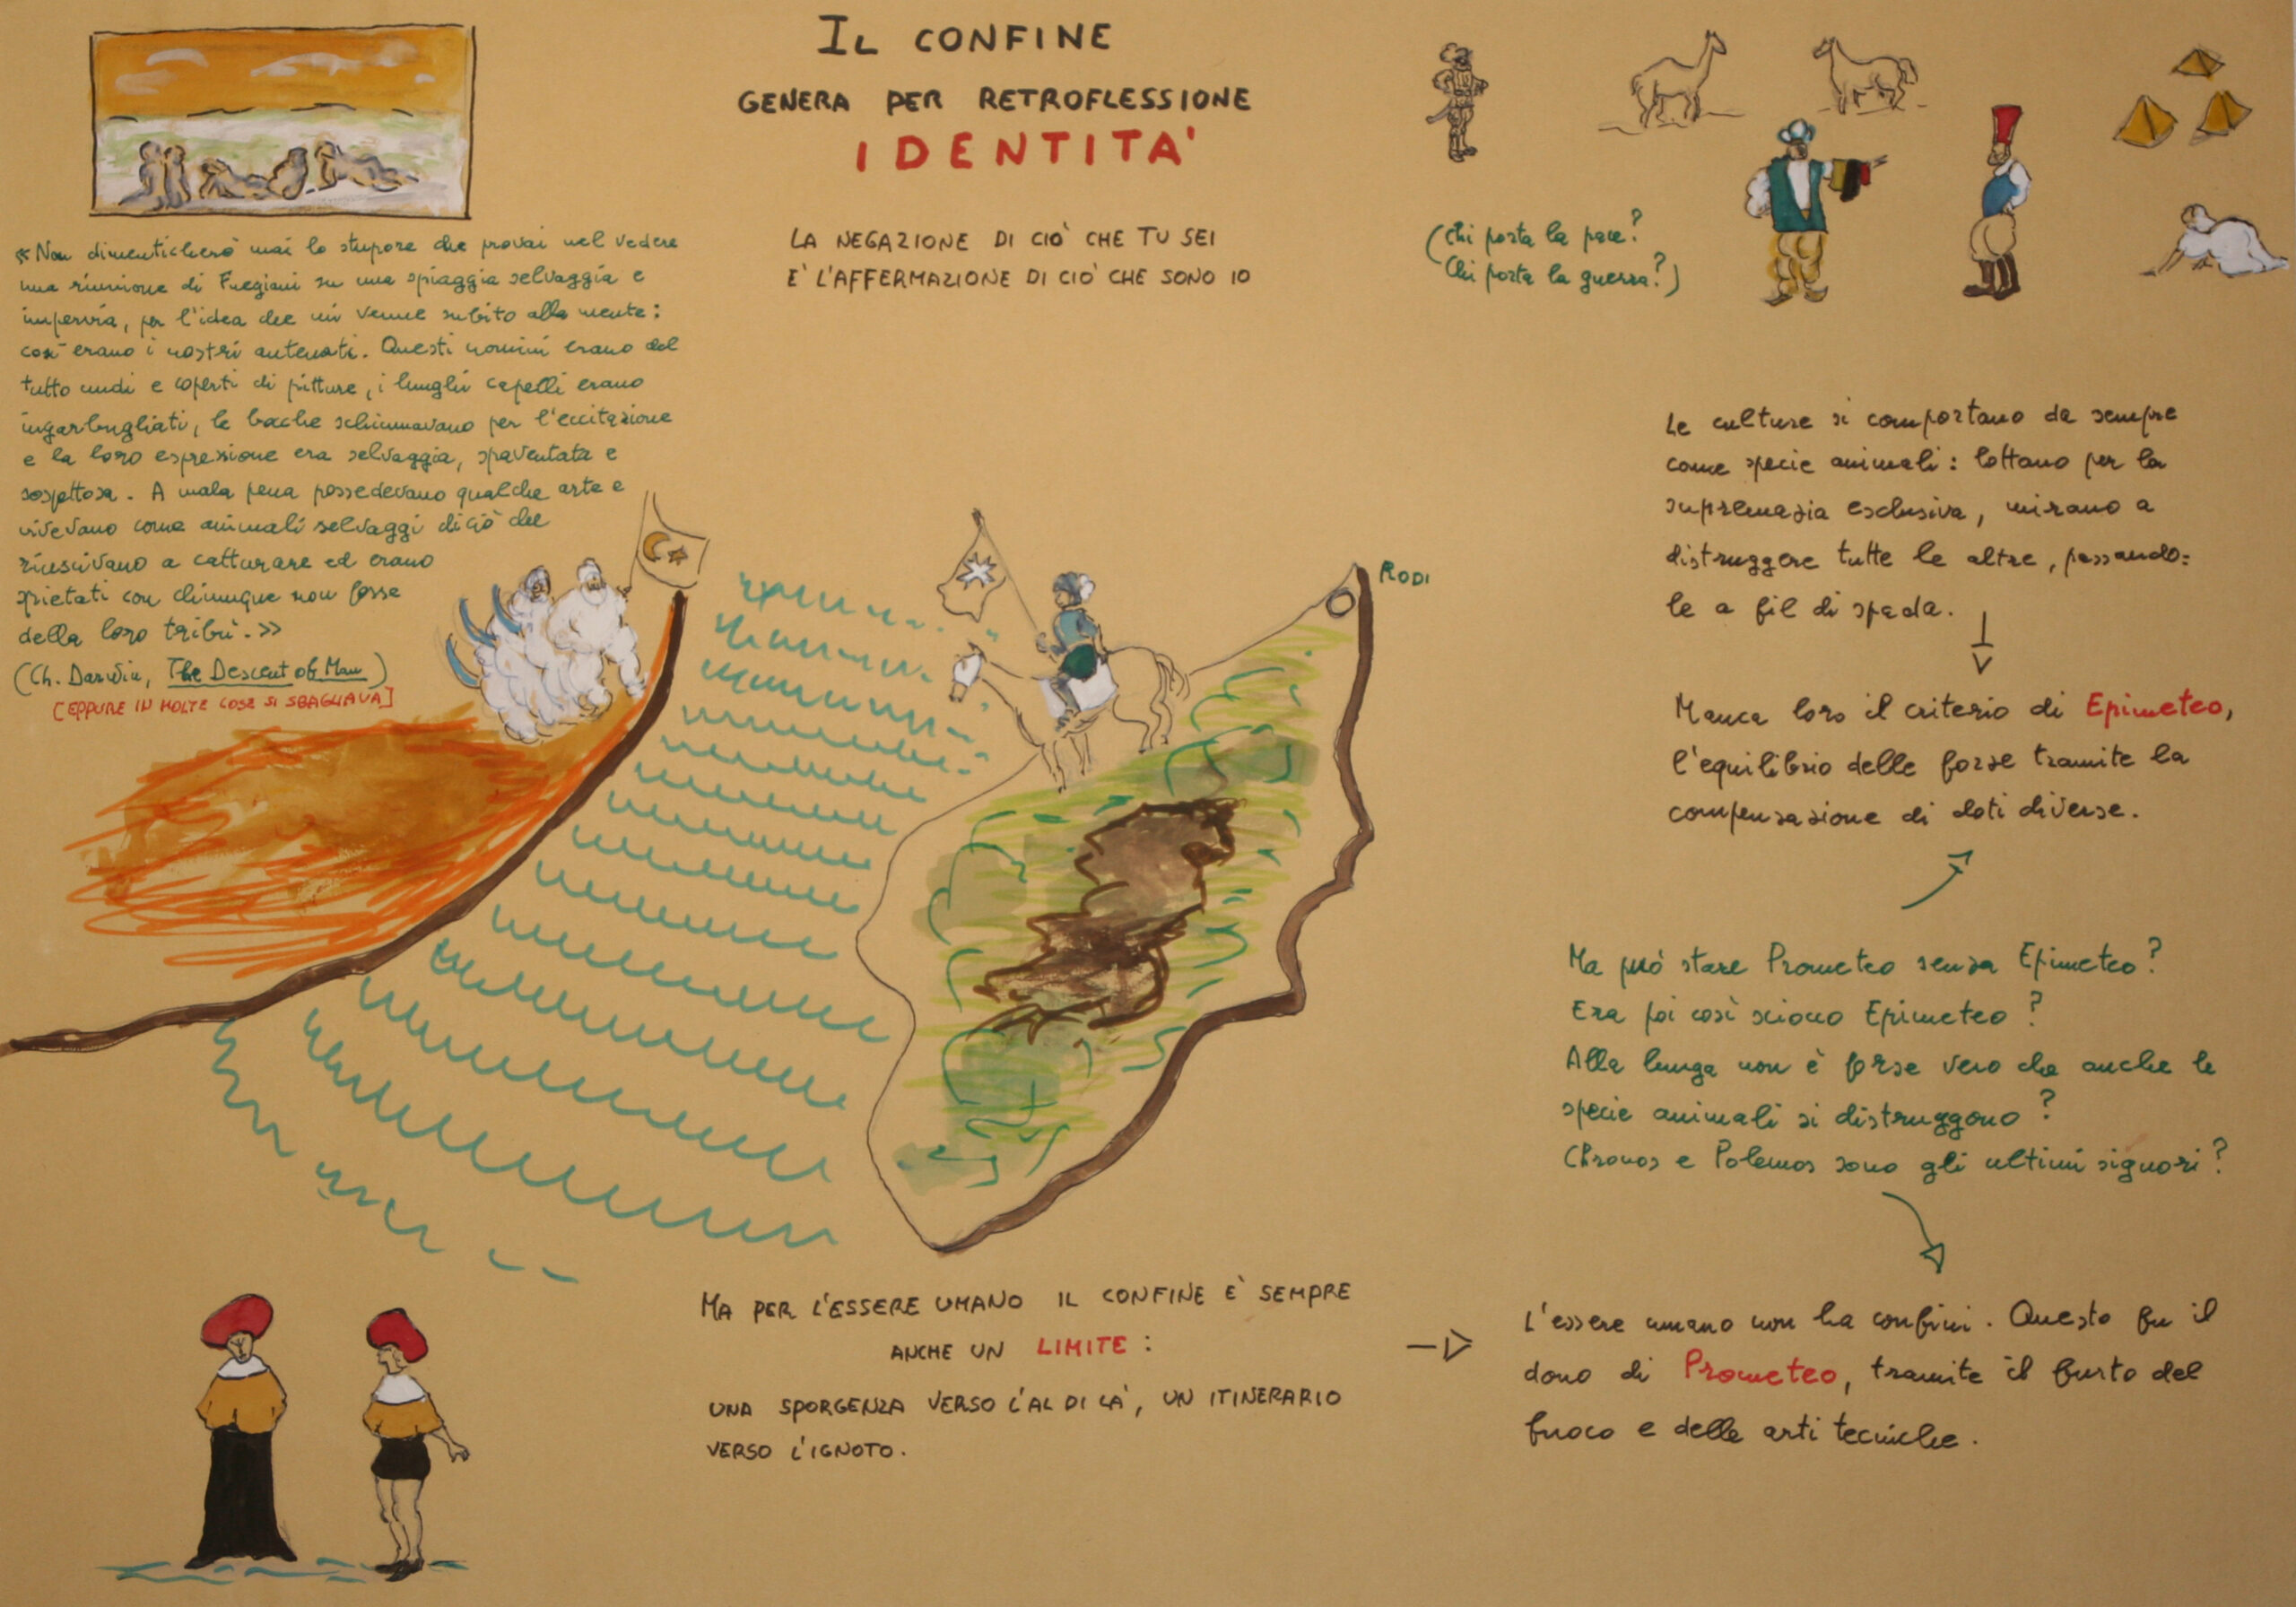 IL CONFINE
GENERA PER RETROFLESSIONE
IDENTITA'
LA NEGAZIONE DI CIÒ CHE TU SEI
E' L'AFFERMAZIONE DI CIO' CHE SONO IO
«Non dimenticherò mai lo stupore che provai nel vedere
una riunione di Fuegiani su una spiaggia selvaggia e
impervia, per l'idea che mi venne subito alla mente:
così erano i nostri antenati. Questi uomini erano del
tutto nudi e coperti di pitture, i lunghi capelli erano
ingarbugliati, le bocche schiumavano per l'eccitazione
e la loro espressione era selvaggia, spaventata e
sospettosa. A mala pena possedevano qualche arte e
vivevano come animali selvaggi di ciò che
riuscivano a catturare ed erano
spietati con chiunque non fosse
della loro tribù.»
(Ch. Darwin, The Descent of Man)
[EPPURE IN MOLTE COSE SI SBAGLIAVA]
(Chi porta la pace?
Chi porta la guerra?)
RODI
Le culture si comportano da sempre
come specie animali: lottano per la
supremazia esclusiva, mirano a
distruggere tutte le altre, passando=
le a fil di spada.
Manca loro il criterio di Epimeteo,
l'equilibrio delle forze tramite la
compensazione di doti diverse.
Ma può stare Prometeo senza Epimeteo?
Era poi così sciocco Epimeteo?
Alla lunga non è forse vero che anche le
specie animali si distruggono?
Chronos e Polemos sono gli ultimi signori?
MA PER L'ESSERE UMANO IL CONFINE È SEMPRE
ANCHE UN LIMITE:
UNA SPORGENZA VERSO L'AL DI LA', UN ITINERARIO
VERSO L'IGNOTO.
L'essere umano non ha confini. Questo fu il
dono di Prometeo, tramite il furto del
fuoco e delle arti tecniche.